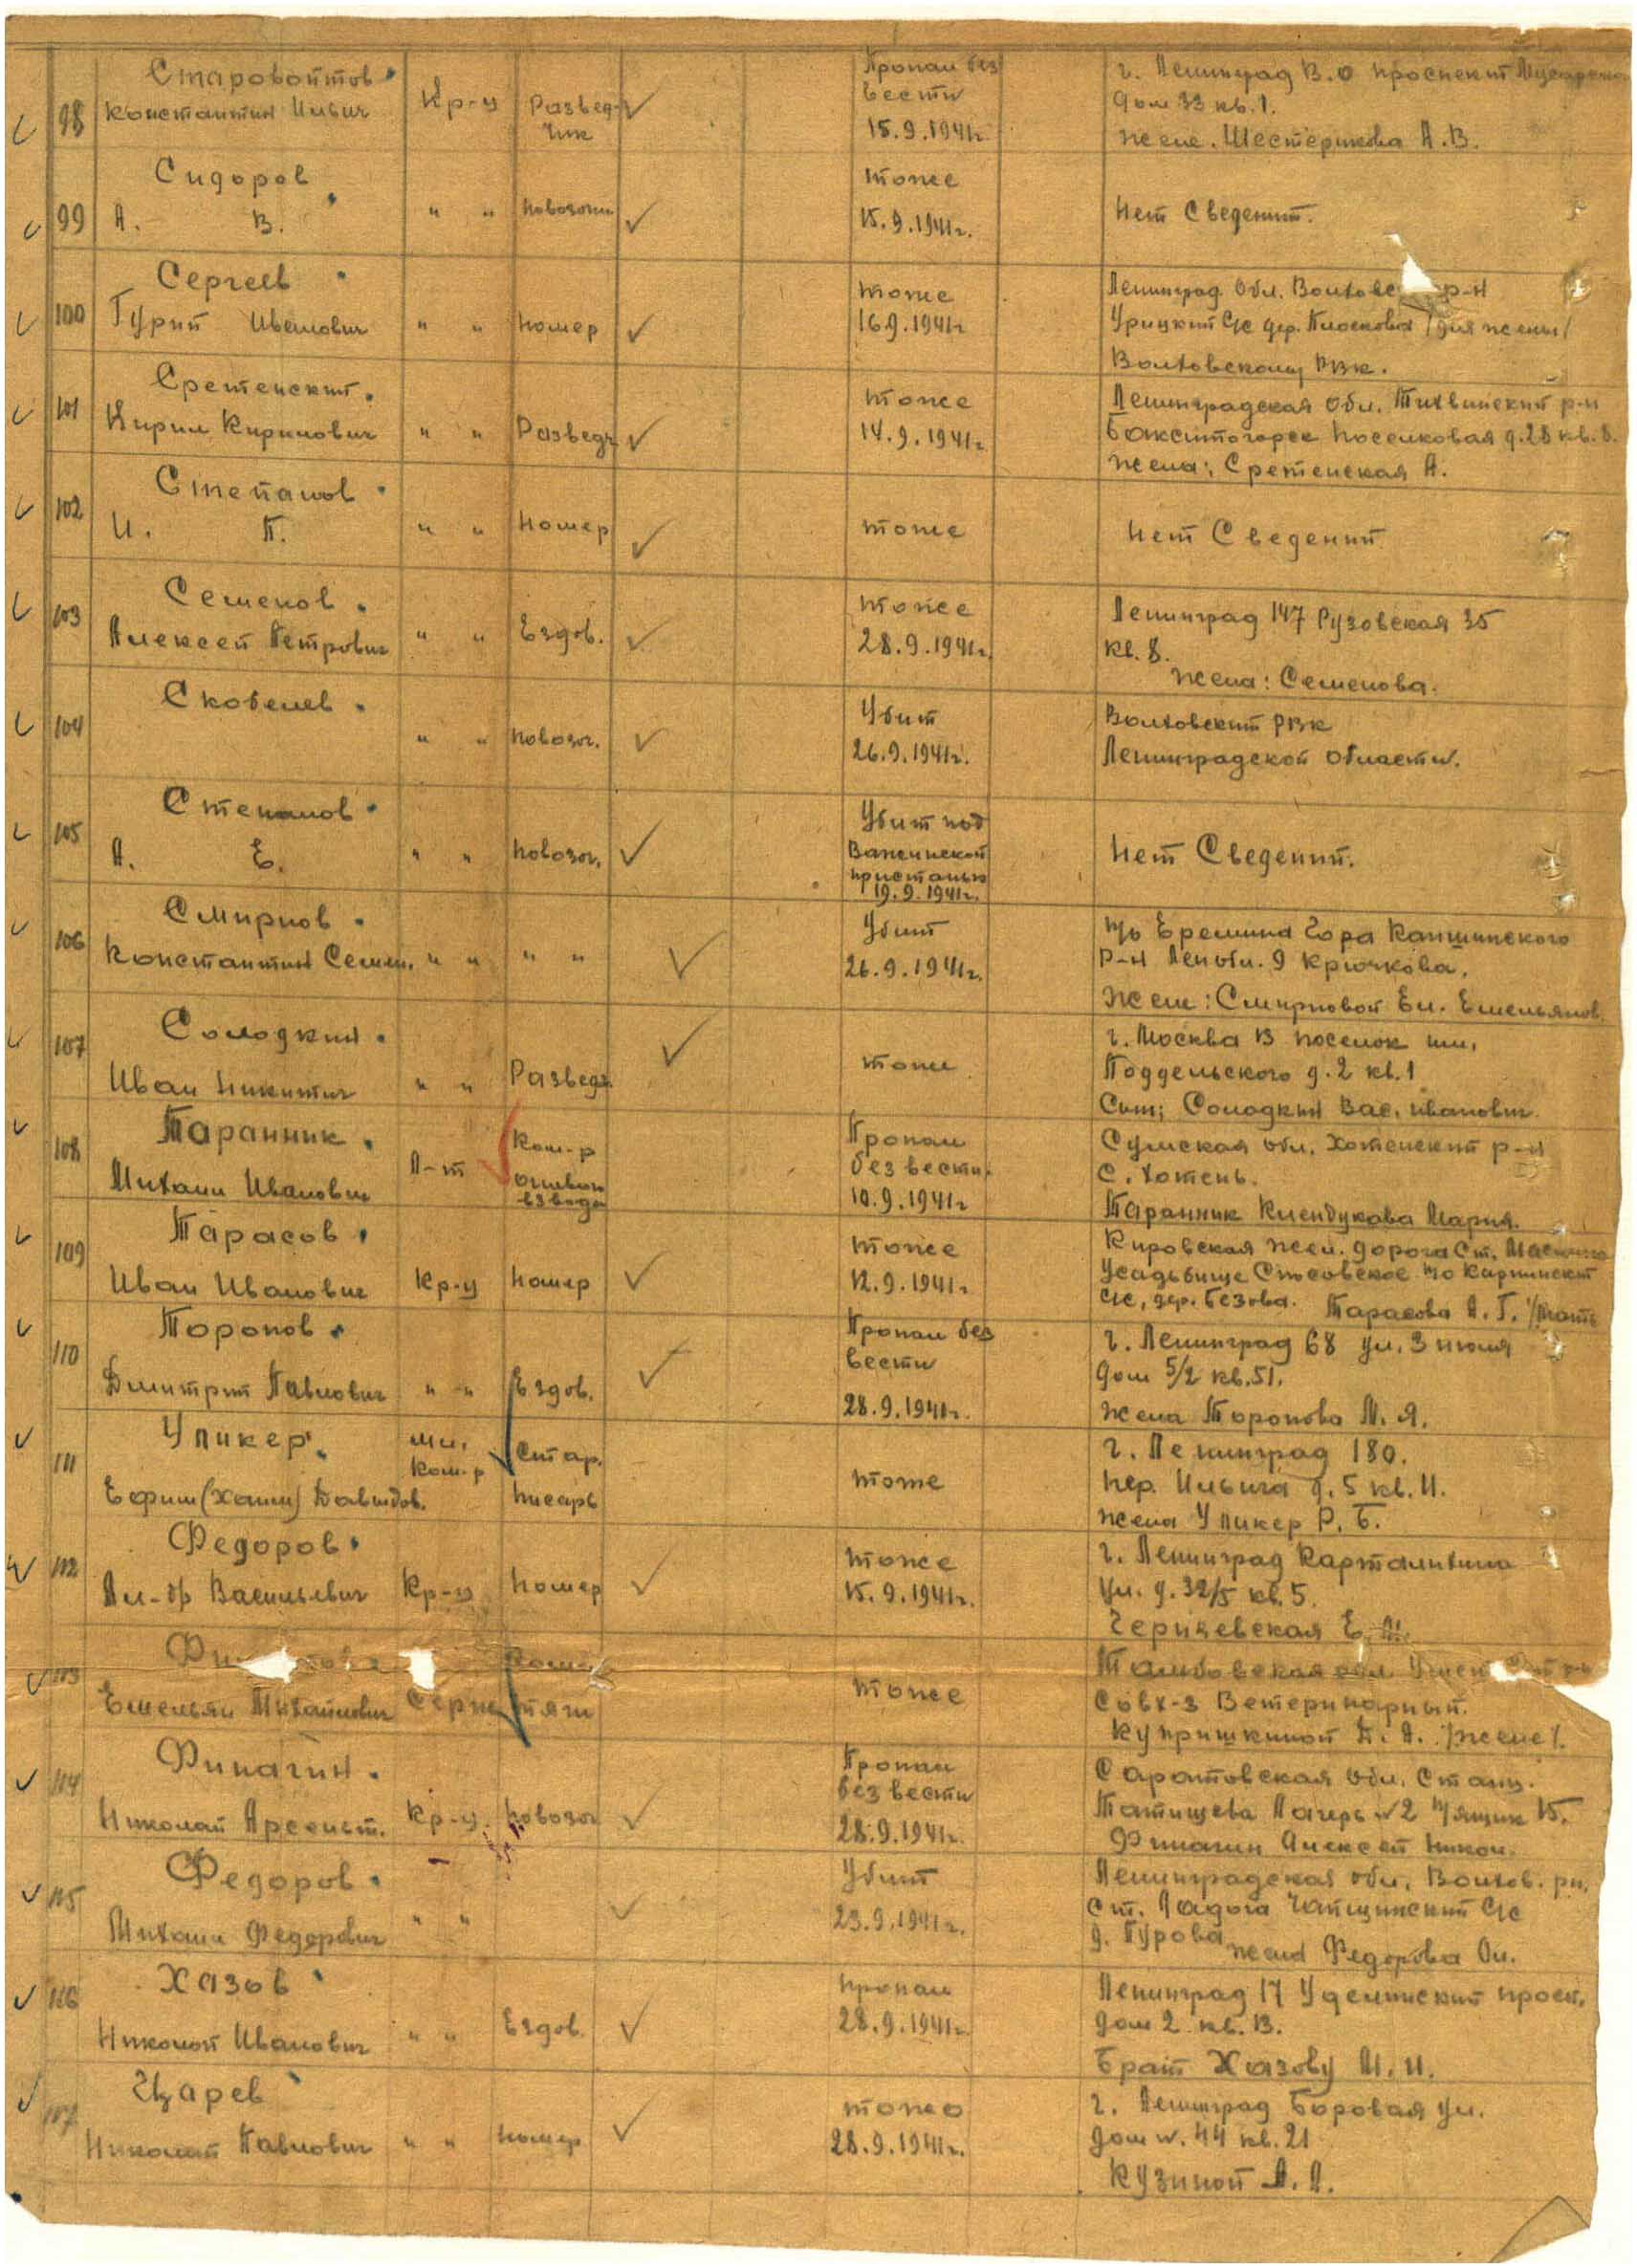 98 Старовойтов Кр-ц Развед-чик Пропал без вести 15.9.1941г. г. Ленинград В.О проспект
Константин Ильич дом 33 кв. 1.
жене. Шестерикова А.В.
99 Сидоров " " повозочн тоже 15.9.1941г. Нет Сведений.
А. В.
100 Сергеев " " номер тоже 16.9.1941г Ленинград. Обл. р-н
Гурий Иванович Урицкий С/с дер. /для жены/
Волховскому РВК.
101 Сретенский. " " Разведч тоже 14.9.1941г. Ленинградская обл. Тихвинский р-н
Кирил Кирилович Бокситогорск Поселковая д.28 кв. 8.
жена: Сретенская А.
102 Степанов " " номер тоже Нет Сведений
И. П.
103 Семенов. " " Ездов. тоже 28.9.1941г. Ленинград 147 Рузовская 35
Алексей Петрович кв. 8.
жена: Семенова.
104 Скобелев. " " повозоч. Убит 26.9.1941г. Волховский РВК
Ленинградской области.
105 Степанов " " повозоч. Убит под пристанью 19.9.1941г. Нет Сведений.
А. Е.
106 Смирнов. " " " " Убит 26.9.1941г. п/о Еремина Гора Капшинского
Константин Семен. р-н Лен обл. д Крючкова.
жене: Смирновой Ел. Емельянов.
107 Солодкин. " " Разведч. тоже г. Москва В поселок им.
Иван Никитич д. 2 кв. 1
Сын; Солодкин Вас. Иванович.
108 Таранник. Л-т Ком-р огневого взвода Пропал без вести. 10.9.1941г Сумская обл. Хотенский р-н
Михаил Иванович С. Хотень.
Таранник Мария.
109 Тарасов. Кр-ц номер тоже 12.9.1941г. Кировская жел. дорога Ст.
Иван Иванович Усадьбище п/о
С/с, дер. Безова. Тарасова А. Г. /мать
110 Торопов. " " Ездов. Пропал без вести 28.9.1941г. г. Ленинград 68 ул. 3 июля
Дмитрий Павлович дом 5/2 кв. 51.
жена Торопова Л. Я.
111 Уликер. мл. ком-р Стар. писарь тоже г. Ленинград 180.
Ефим (Хаим) Давидов. пер. Ильича д. 5 кв. 11.
жена Уликер Р. Б.
112 Федоров. Кр-ц номер тоже 15.9.1941г. г. Ленинград
Ал-др Васильевич ул. д. 32/5 кв. 5.
Е.
113 тоже Тамбовская обл.
Емельян Михайлович Серж Совх-з Ветеринарный.
Купришкиной А. /жене/.
114 Финагин. Кр-ц. повозоч Пропал без вести 28.9.1941г. Саратовская обл. Станц.
Николай Арсеньт. Татищева Лагерь №2 п/ящик 15.
Финагин Алексей Никол.
115 Федоров. " " Убит 23.9.1941г. Ленинградская обл. Волхов. рн.
Михаил Федорович ст. Ладога С/с
д. Гурова жена Федорова Ол.
116 Хазов " " Ездов. пропал 28.9.1941г. Ленинград 17 Удельнинский просп.
Николай Иванович дом 2 кв. 13.
Брат Хазову М. И.
117 Царев " " номер тоже 28.9.1941г. г. Ленинград Боровая ул.
Николай Павлович дом №. 44 кв. 21
Кузиной А. А.